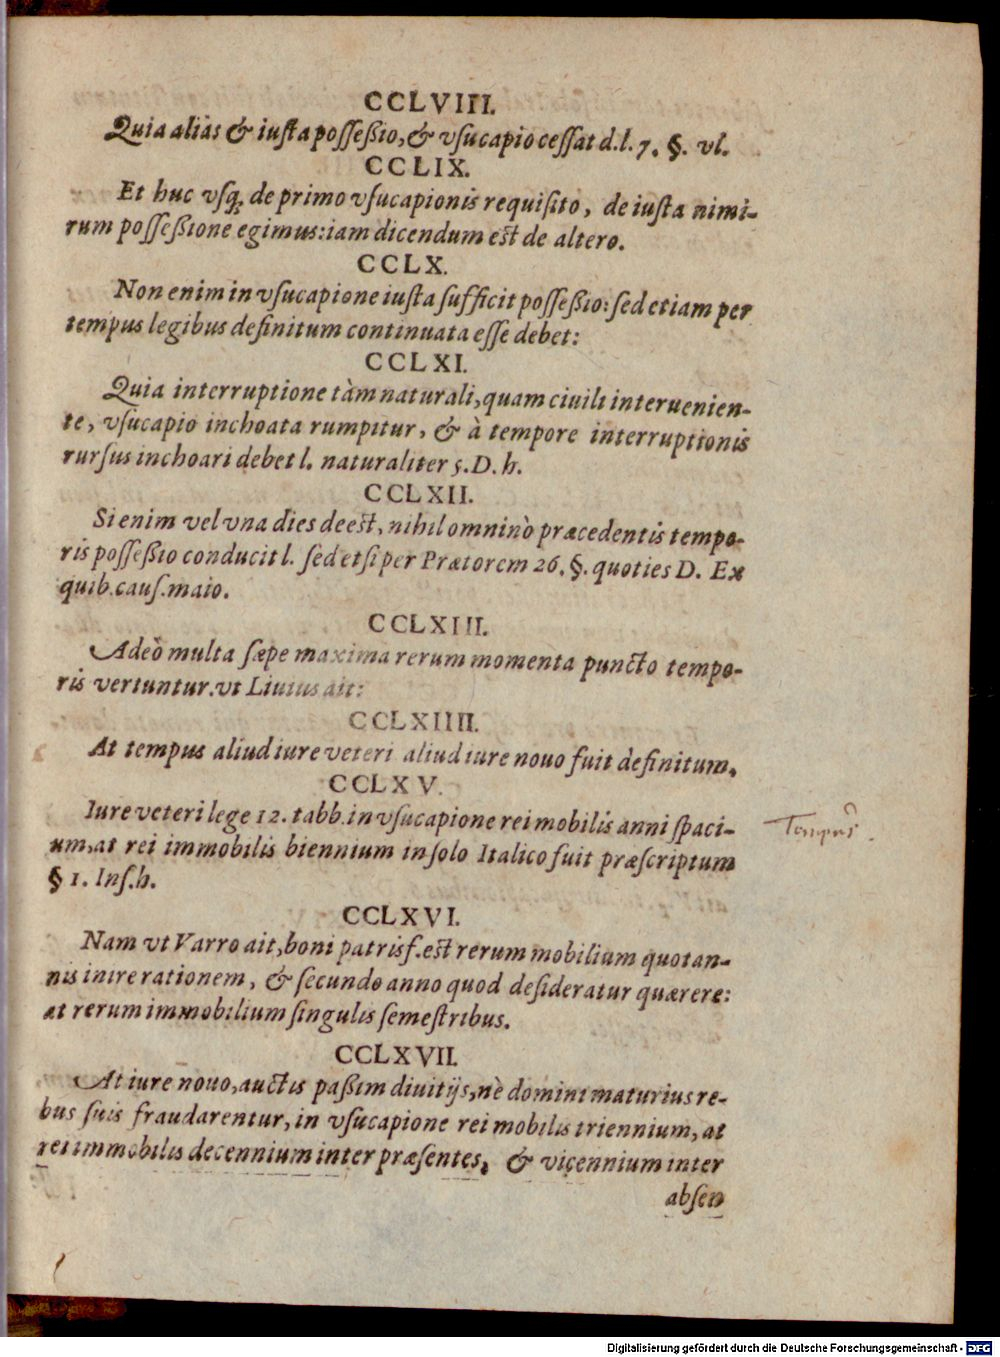 CCLVIII.
Quia alias & iusta possessio, & vsucapio cessat d.l. 7. §. vl.
CCLIX.
Et huc vsq; de primo vsucapionis requisito, de iusta nimi-
rum possessione egimus: iam dicendum est de altero.
CCLX.
Non enim in vsucapione iusta sufficit possessio: sed etiam per
tempus legibus definitum continuata esse debet:
CCLXI.
Quia interruptione tàm naturali, quam ciuili interuenien-
te, vsucapio inchoata rumpitur, & à tempore interruptionis
rursus inchoari debet l. naturaliter 5. D. h.
CCLXII.
Si enim vel vna dies deest, nihil omninò præcedentis tempo-
ris possessio conducit l. sed etsi per Prætorem 26. §. quoties D. Ex
quib. caus. maio.
CCLXIII.
Adeò multa sæpe maxima rerum momenta puncto tempo-
ris vertuntur. vt Liuius ait:
CCLXIIII.
At tempus aliud iure veteri aliud iure nouo fuit definitum.
CCLXV.
Iure veteri lege 12. tabb. in vsucapione rei mobilis anni spaci-
um, at rei immobilis biennium in solo Italico fuit præscriptum
§ 1. Ins. h.
Tempus.
CCLXVI.
Nam vt Varro ait, boni patrisf. est rerum mobilium quotan-
nis inire rationem, & secundo anno quod desideratur quærere:
at rerum immobilium singulis semestribus.
CCLXVII.
At iure nouo, auctis passim diuitijs, nè domini maturius re-
bus suis fraudarentur, in vsucapione rei mobilis triennium, at
rei immobilis decennium inter præsentes, & vicennium inter
absen
Digitalisierung gefördert durch die Deutsche Forschungsgemeinschaft - DFG